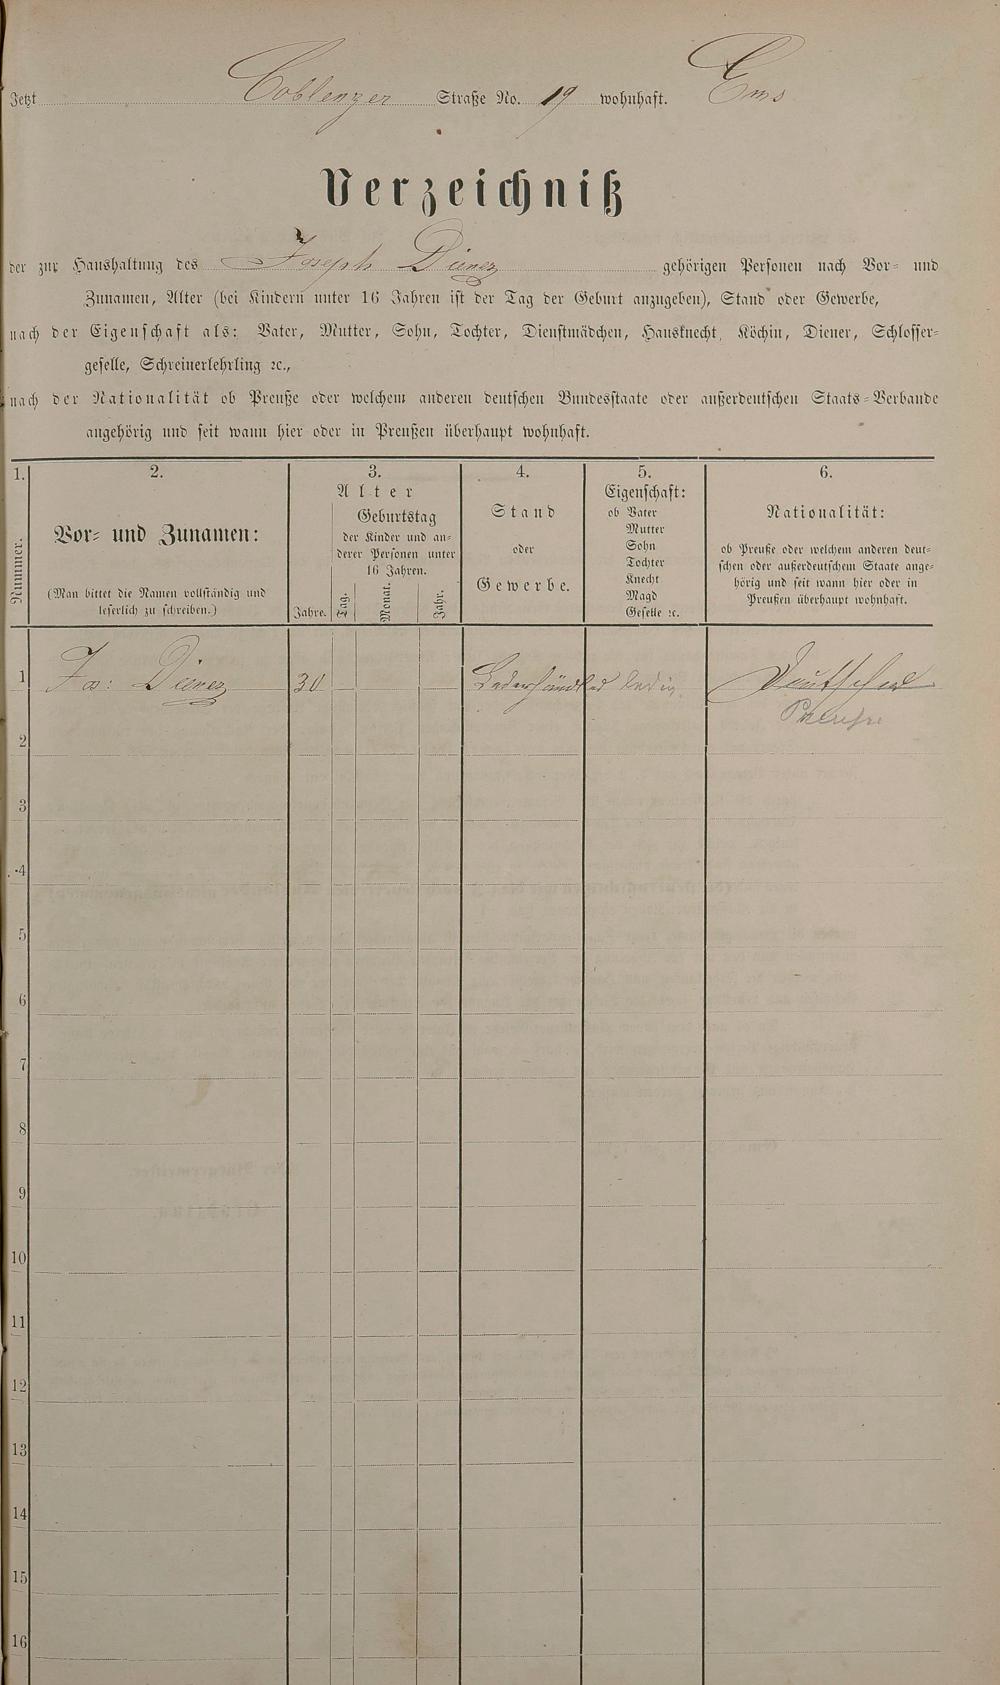 Jetzt Coblenzer Straße No. 19 wohnhaft. Ems
Verzeichniß
der zur Haushaltung des Joseph Diener gehörigen Personen nach Vor- und
Zunamen, Alter (bei Kindern unter 16 Jahren ist der Tag der Geburt anzugeben), Stand oder Gewerbe,
nach der Eigenschaft als: Vater, Mutter, Sohn, Tochter, Dienstmädchen, Hausknecht, Köchin, Diener, Schlosser-
geselle, Schreinerlehrling ꝛc.,
nach der Nationalität ob Preuße oder welchem anderen deutschen Bundesstaate oder außerdeutschen Staats-Verbande
angehörig und seit wann hier oder in Preußen überhaupt wohnhaft.
1.
Nummer.
2.
Vor- und Zunamen:
(Man bittet die Namen vollständig und
leserlich zu schreiben.)
3.
Alter
Jahre.
Geburtstag
der Kinder und an-
derer Personen unter
16 Jahren.
Tag.
Monat.
Jahr.
4.
Stand
oder
Gewerbe.
5.
Eigenschaft:
ob Vater
Mutter
Sohn
Tochter
Knecht
Magd
Geselle ꝛc.
6.
Nationalität:
ob Preuße oder welchem anderen deut-
schen oder außerdeutschem Staate ange-
hörig und seit wann hier oder in
Preußen überhaupt wohnhaft.
1 Jos: Diener 30 Lederhändler ledig Deutscher
Preusse
2
3
4
5
6
7
8
9
10
11
12
13
14
15
16